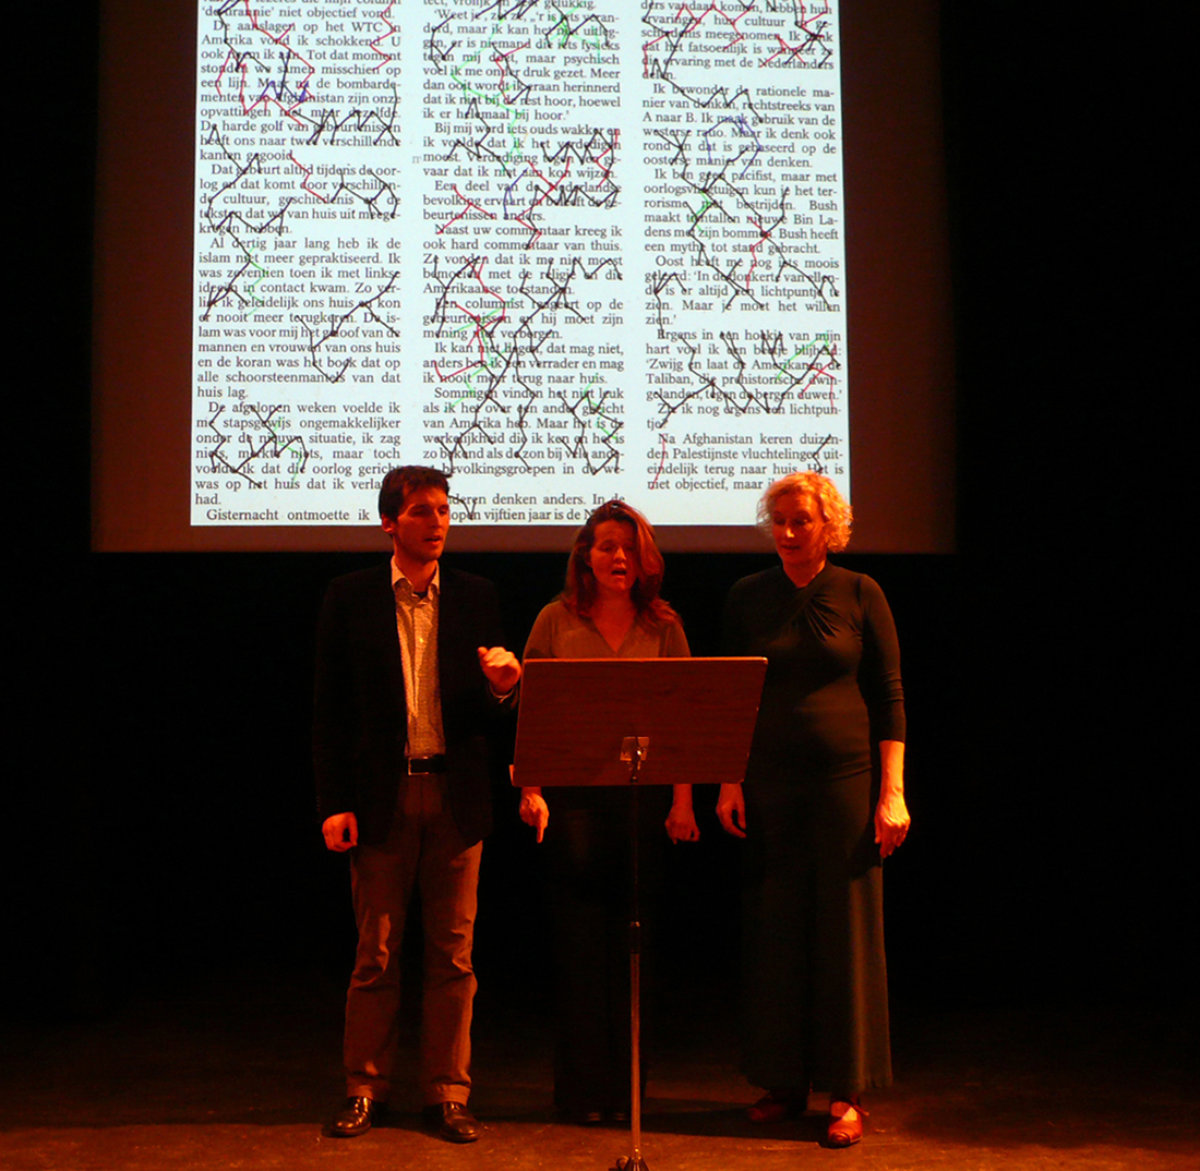 'de tirannie' niet objectief vond.
De aanslagen op het WTC in
Amerika vond ik schokkend. U
ook neem ik aan. Tot dat moment
stonden we samen misschien op
een lijn. Maar na de bombarde-
menten van Afghanistan zijn onze
opvattingen niet meer dezelfde.
De harde golf van gebeurtenissen
heeft ons naar twee verschillende
kanten gegooid.
Dat gebeurt altijd tijdens de oor-
log en dat komt door verschillen-
de cultuur, geschiedenis en de
teksten dat we van huis uit meege-
kregen hebben.
Al dertig jaar lang heb ik de
islam niet meer gepraktiseerd. Ik
was zeventien toen ik met linkse
ideeën in contact kwam. Zo ver-
liet ik geleidelijk ons huis en kon
er nooit meer terugkeren. De is-
lam was voor mij het geloof van de
mannen en vrouwen van ons huis
en de koran was het boek dat op
alle schoorsteenmantels van dat
huis lag.
De afgelopen weken voelde ik
me stapsgewijs ongemakkelijker
onder de nieuwe situatie, ik zag
niets, merkte niets, maar toch
voelde ik dat die oorlog gericht
was op het huis dat ik verla
had.
Gisternacht ontmoette ik
tect, vrolijk en gelukkig.
'Weet je', zei ze, „'r is iets veran-
derd, maar ik kan het niet uitleg-
gen, er is niemand die iets fysieks
tegen mij doet, maar psychisch
voel ik me onder druk gezet. Meer
dan ooit wordt ik eraan herinnerd
dat ik niet bij de rest hoor, hoewel
ik er helemaal bij hoor.'
Bij mij werd iets ouds wakker en
ik voelde dat ik het verdedigen
moest. Verdediging tegen het ge-
vaar dat ik niet aan kon wijzen.
Een deel van de Nederlandse
bevolking ervaart en beleeft de ge-
beurtenissen anders.
Naast uw commentaar kreeg ik
ook hard commentaar van thuis.
Ze vonden dat ik me niet moest
bemoeien met de religie en die
Amerikaanse toestanden.
Een columnist reageert op de
gebeurtenissen en hij moet zijn
mening niet verbergen.
Ik kan niet liegen, dat mag niet,
anders ben ik een verrader en mag
ik nooit meer terug naar huis.
Sommigen vinden het niet leuk
als ik het over een ander gezicht
van Amerika heb. Maar het is de
werkelijkheid die ik ken en het is
zo bekend als de zon bij vele ande
bevolkingsgroepen in de we-
anderen denken anders. In de
lopen vijftien jaar is de N
ders vandaan komen, hebben hun
ervaringen, hun cultuur en ge-
schiedenis meegenomen. Ik denk
dat het fatsoenlijk is wanneer ze
die ervaring met de Nederlanders
delen.
Ik bewonder de rationele ma-
nier van denken, rechtstreeks van
A naar B. Ik maak gebruik van de
westerse ratio. Maar ik denk ook
rond en dat is gebaseerd op de
oosterse manier van denken.
Ik ben geen pacifist, maar met
oorlogsvliegtuigen kun je het ter-
rorisme niet bestrijden. Bush
maakt tientallen nieuwe Bin La-
dens met zijn bommen. Bush heeft
een mythe tot stand gebracht.
Oost heeft me nog iets moois
geleerd: 'In de donkerte van ellen-
de is er altijd een lichtpuntje te
zien. Maar je moet het willen
zien.'
Ergens in een hoekje van mijn
hart voel ik een beetje blijheid:
'Zwijg en laat de Amerikanen de
Taliban, die prehistorische dwin-
gelanden, tegen de bergen duwen.'
Zie ik nog ergens een lichtpun-
tje?
Na Afghanistan keren duizen-
den Palestijnste vluchtelingen uit-
eindelijk terug naar huis. Het is
niet objectief, maar i